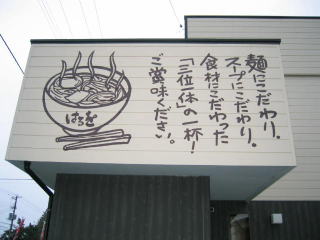 麺にこだわり。
スープにこだわり。
食材にこだわった
「三位一体」の一杯！
ご賞味ください。